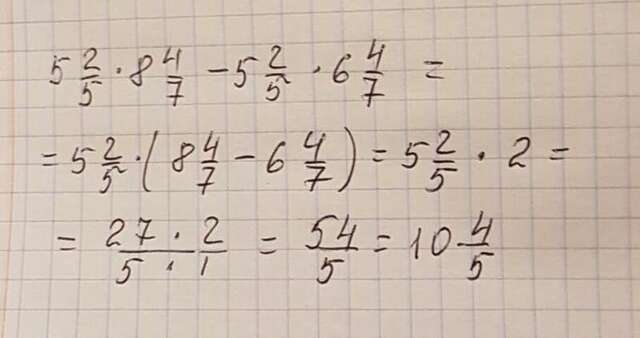 5 2/5 · 8 4/7 − 5 2/5 · 6 4/7 =
= 5 2/5 · (8 4/7 − 6 4/7) = 5 2/5 · 2 =
= (27 · 2)/(5 · 1) = 54/5 = 10 4/5